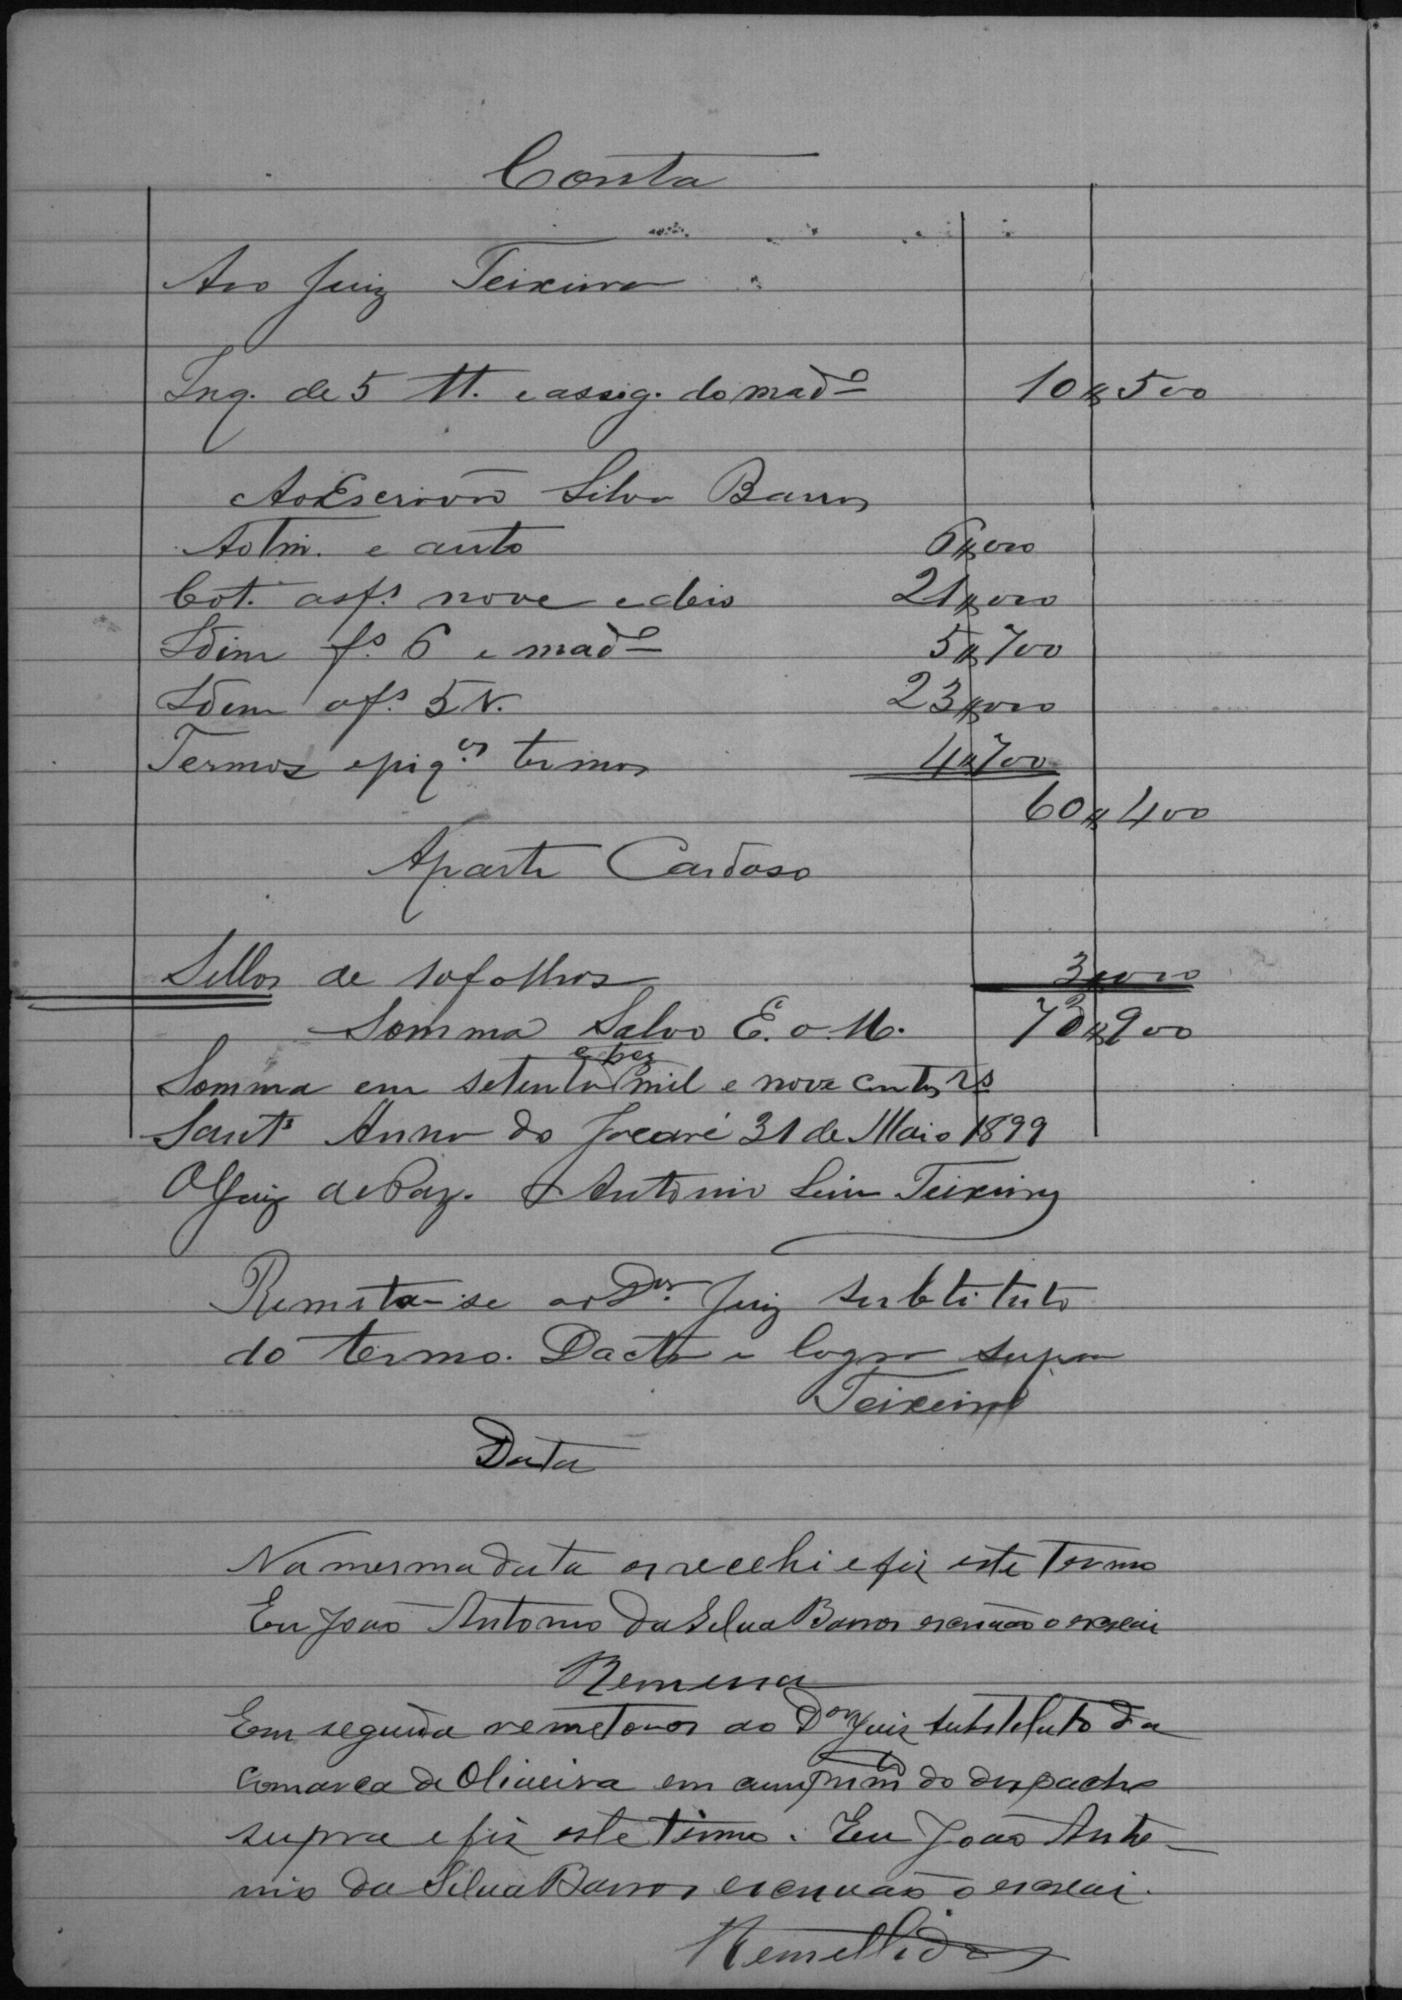 Conta
Ao Juiz Teixeira
Inq. de 5 tt. e assig. do mad.o 10$500
Ao Escrivão Silva Barros
Aotm. e auto 6$000
Cot. as f.s nove e deis 21$000
Idem f.s 6 e mad.o 5$700
Idem a f.s 5 v. 23$000
Termos e piq.os termos 4$700
60$400
Aparte Cardoso
Sellos de 10 folhas 3$000
Somma Salvo E. o M. 73$900
e trez
Somma em setenta mil e nove centos rs
Sant' Anna do Jacaré 31 de Maio 1899
O Juiz de Paz. Antonio Teixeira
Remeta-se ao Dor. Juiz substituto
do termo. Dacta e logar supra
Teixeira
Data
Na mesma data os recebi e fiz este termo
Eu João Antonio da Silva Barros escrivão o escrevi
Remessa
Em seguida remeto-os ao Dor Juiz substituto da
comarca de Oliveira em cumprimto do despacho
supra e fiz este termo. Eu João Anto-
nio da Silva Barros escrivão o escrevi.
Remettidos